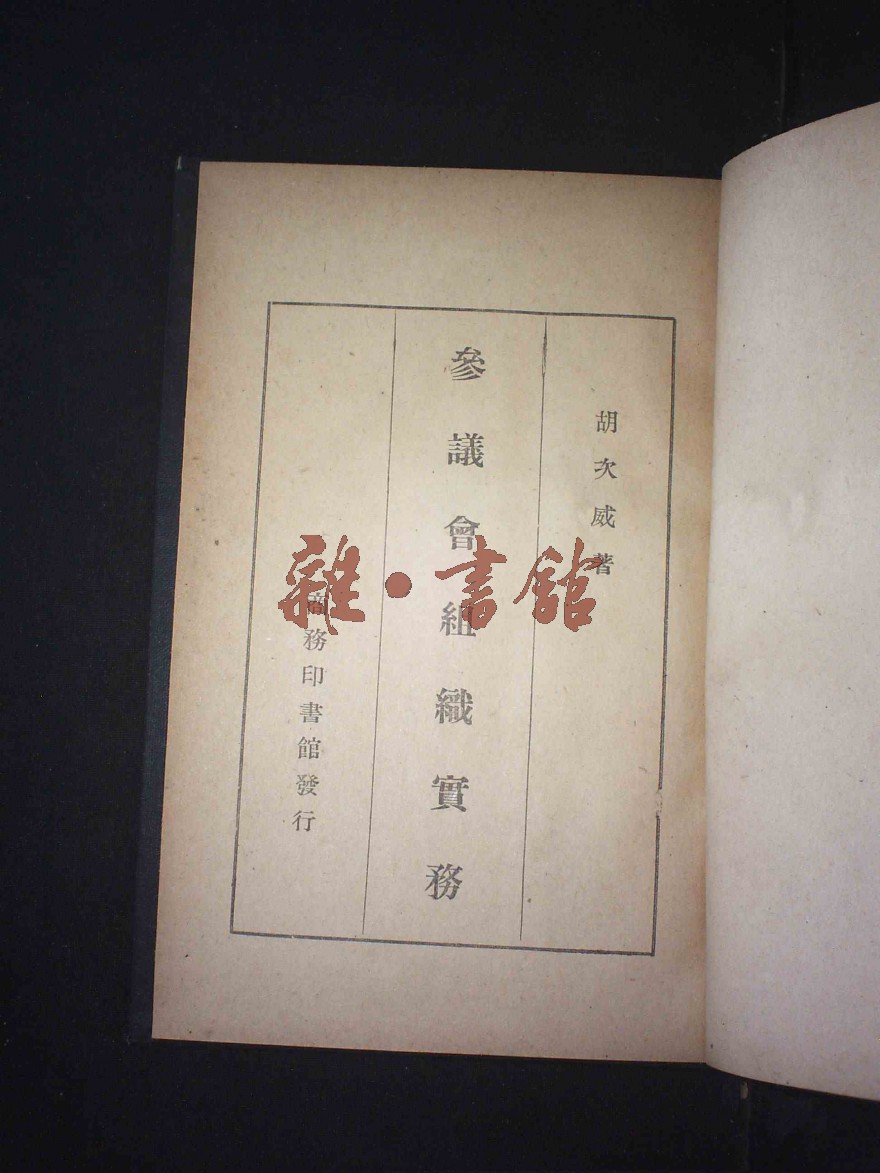 胡次威著
參議會組織實務
商務印書館發行
雜·書館